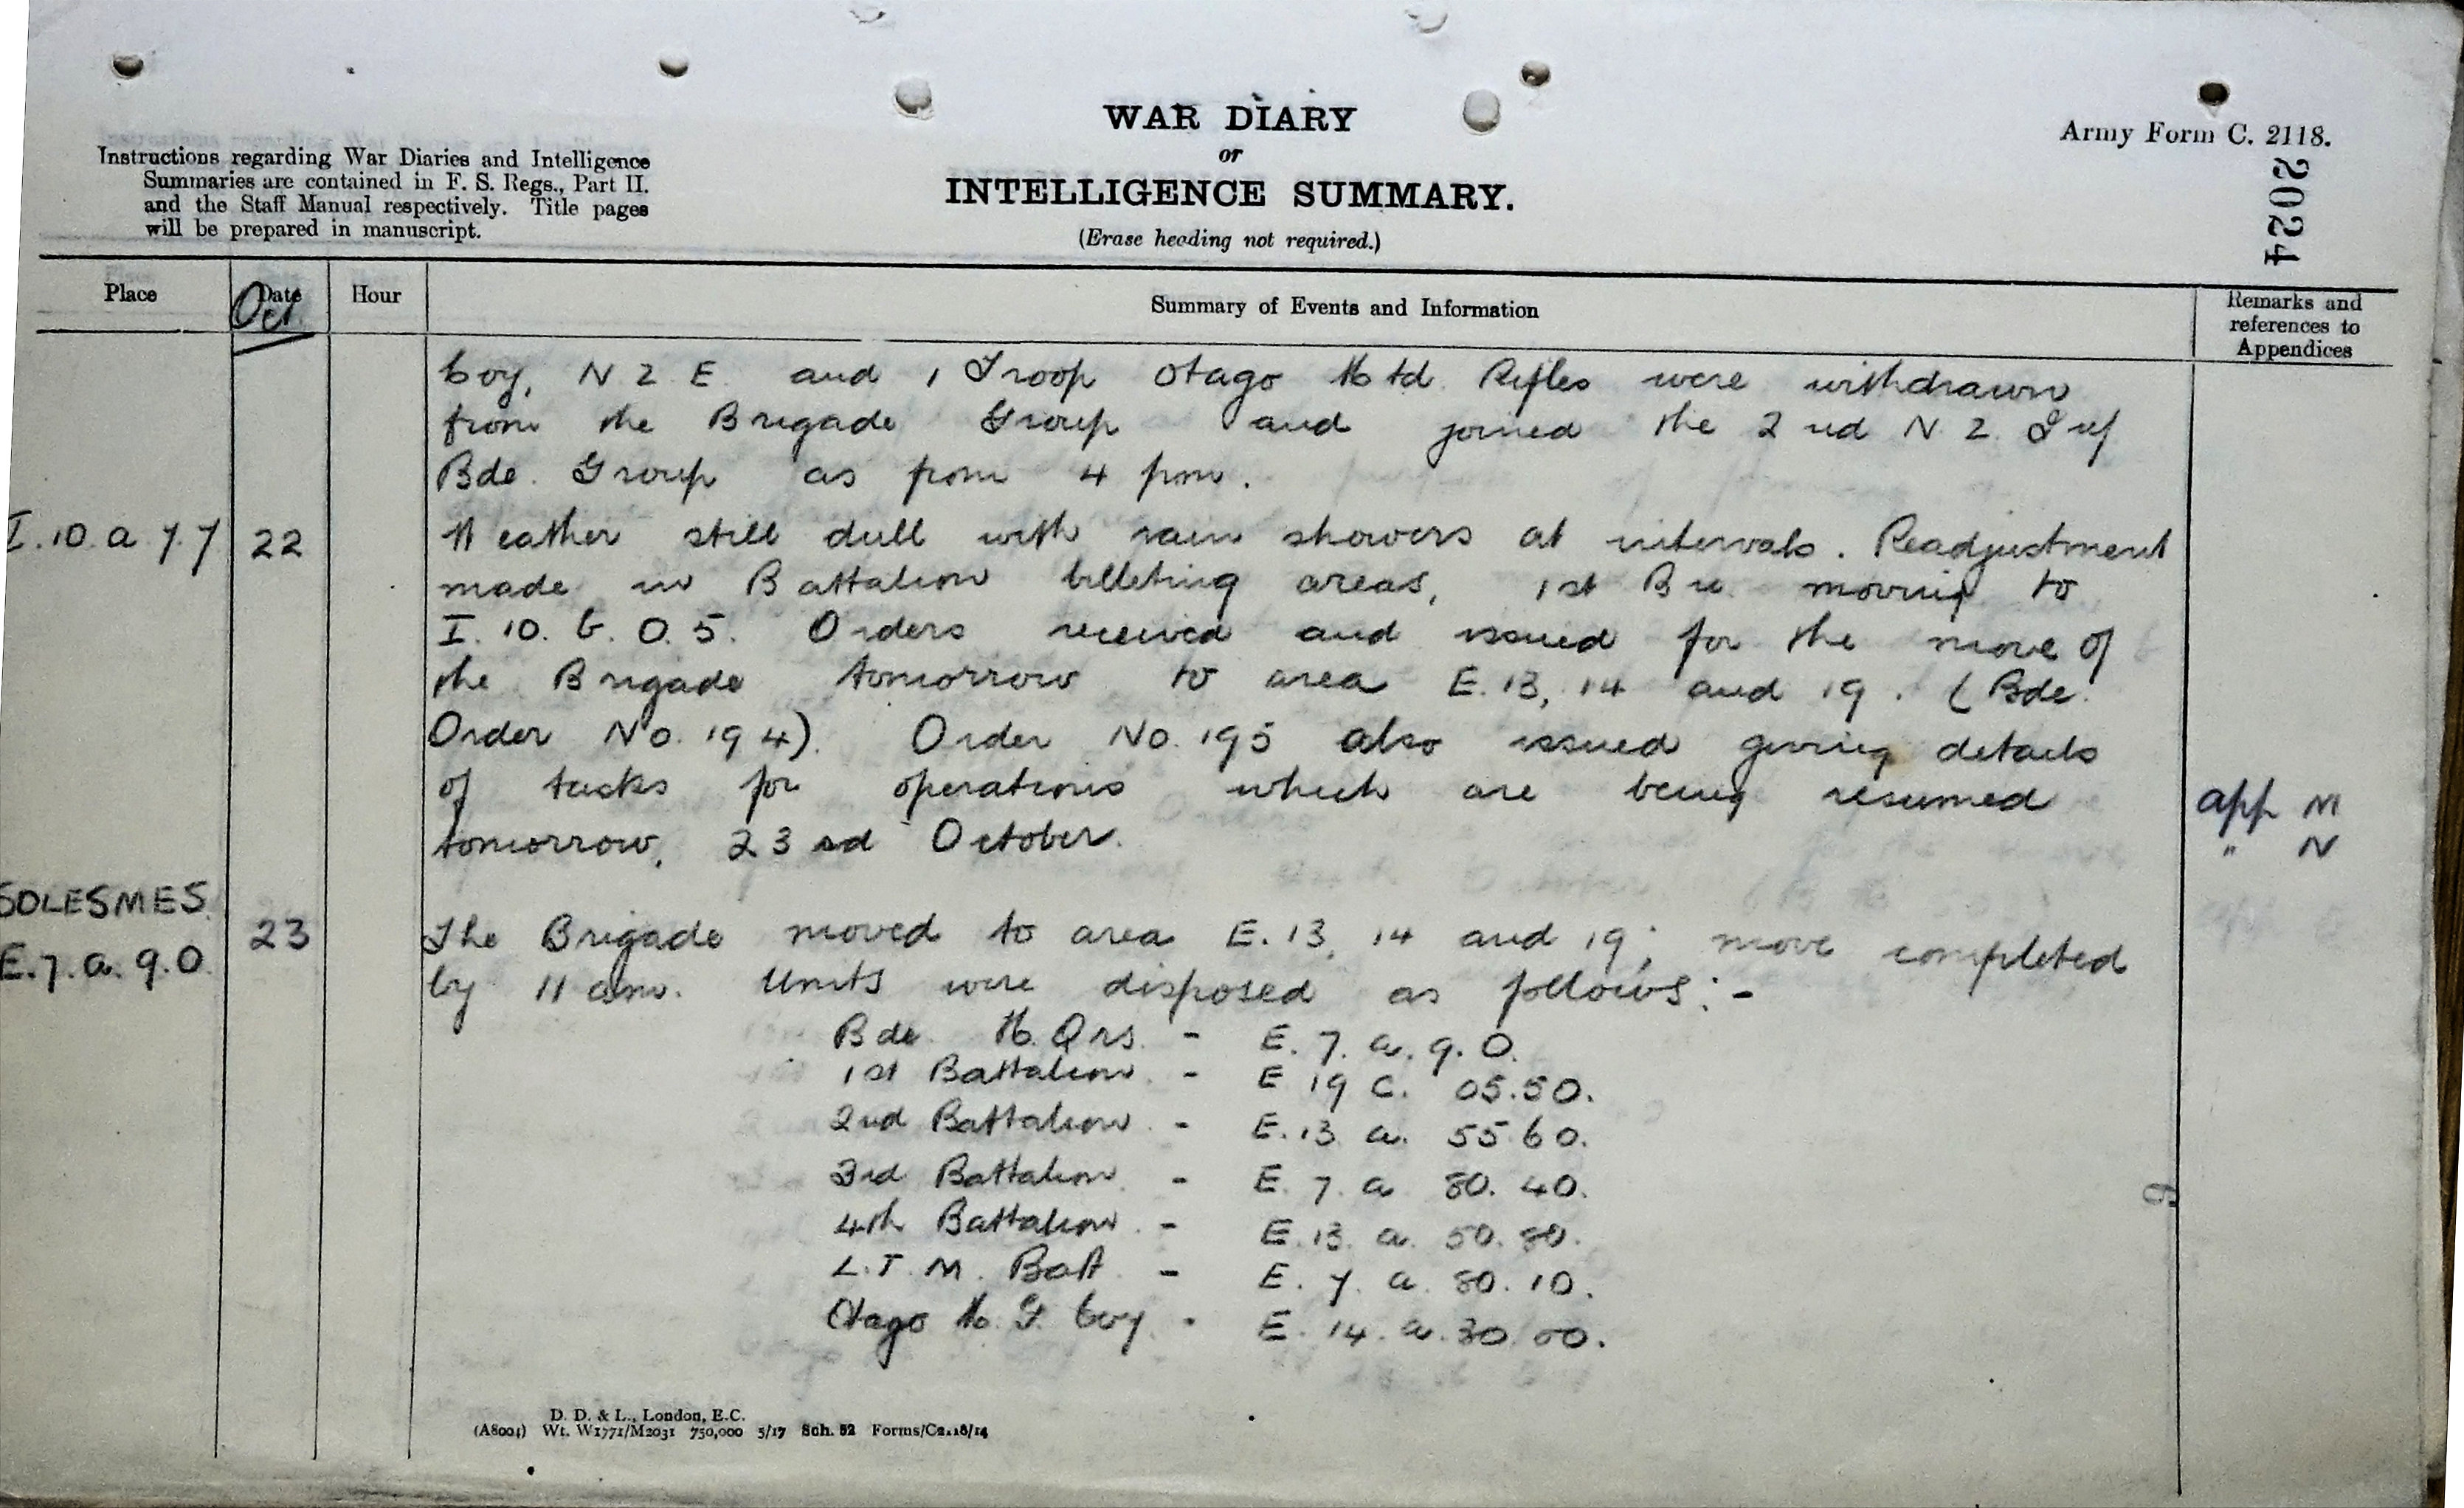 WAR DIARY
or
INTELLIGENCE SUMMARY.
(Erase heading not required.)
Army Form C. 2118.
2024
Instructions regarding War Diaries and Intelligence
Summaries are contained in F. S. Regs., Part II.
and the Staff Manual respectively. Title pages
will be prepared in manuscript.
Place
Date
Oct
Hour
Summary of Events and Information
Remarks and
references to
Appendices
Coy, N Z E and 1 Troop Otago Mtd Rifles were withdrawn
from the Brigade Group and joined the 2nd N Z Inf
Bde. Group as from 4 pm.
I.10.a 7.7 22 Weather still dull with rain showers at intervals. Readjustment
made in Battalion billeting areas, 1st Bn moving to
I. 10. b. 0. 5. Orders received and issued for the move of
the Brigade tomorrow to area E.13, 14 and 19. (Bde.
Order No. 194). Order No. 195 also issued giving details
of tasks for operations which are being resumed app M
tomorrow, 23rd October. " N
SOLESMES
E.7.a.9.0. 23 The Brigade moved to area E.13, 14 and 19; move completed
by 11 am. Units were disposed as follows:-
Bde H. Qrs. - E. 7. a. 9. 0.
1st Battalion. - E 19 C. 05.50.
2nd Battalion. - E.13 a. 55 60.
3rd Battalion. - E. 7. a 80. 40.
4th Battalion. - E.13. a. 50. 80.
L.T.M. Batt. - E. 7. a. 80. 10.
Otago M. G. Coy. - E. 14. a. 30. 00.
D. D. & L., London, E.C.
(A8004) Wt. W1771/M2031 750,000 5/17 Sch. 52 Forms/C2118/14